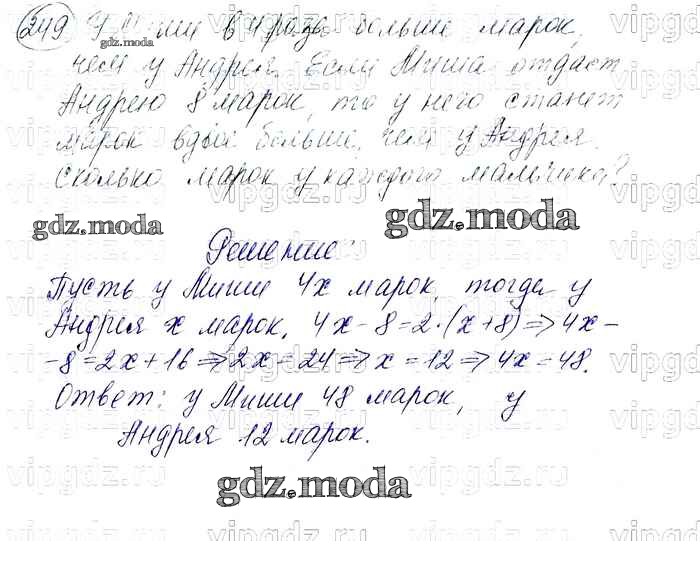 249 У Миши в 4 раза больше марок,
чем у Андрея. Если Миша отдаст
Андрею 8 марок, то у него станет
марок вдвое больше, чем у Андрея.
Сколько марок у каждого мальчика?
gdz.moda
gdz.moda
gdz.moda
Решение:
Пусть у Миши 4х марок, тогда у
Андрея х марок. 4х-8=2·(х+8)⇒4х-
-8=2х+16⇒2х=24⇒х=12⇒4х=48.
Ответ: у Миши 48 марок, у
Андрея 12 марок.
gdz.moda
vipgdz.ru vipgdz.ru vipgdz.ru